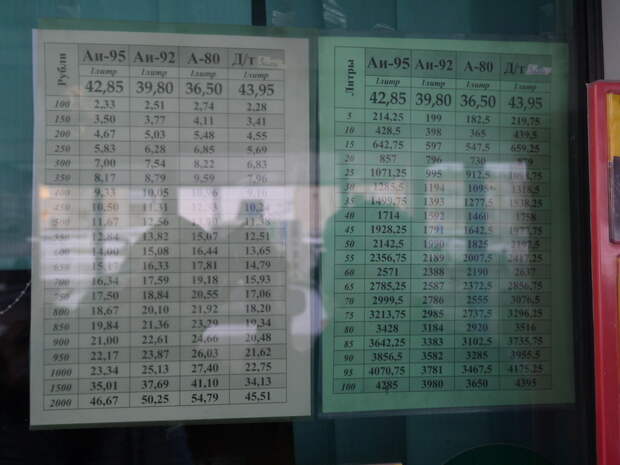 Рубли Аи-95 Аи-92 А-80 Д/т
1литр 1литр 1литр 1литр
42,85 39,80 36,50 43,95
100 2,33 2,51 2,74 2,28
150 3,50 3,77 4,11 3,41
200 4,67 5,03 5,48 4,55
250 5,83 6,28 6,85 5,69
300 7,00 7,54 8,22 6,83
350 8,17 8,79 9,59 7,96
400 9,33 10,05 10,96 9,10
450 10,50 11,31 12,33 10,24
500 11,67 12,56 11,38
550 12,84 13,82 15,07 12,51
600 14,00 15,08 16,44 13,65
650 15,17 16,33 17,81 14,79
700 16,34 17,59 19,18 15,93
750 17,50 18,84 20,55 17,06
800 18,67 20,10 21,92 18,20
850 19,84 21,36 23,29 19,34
900 21,00 22,61 24,66 20,48
950 22,17 23,87 26,03 21,62
1000 23,34 25,13 27,40 22,75
1500 35,01 37,69 41,10 34,13
2000 46,67 50,25 54,79 45,51
Литры Аи-95 Аи-92 А-80 Д/т
1литр 1литр 1литр 1литр
42,85 39,80 36,50 43,95
5 214,25 199 182,5 219,75
10 428,5 398 365 439,5
15 642,75 597 547,5 659,25
20 857 796 730 879
25 1071,25 995 912,5
30 1285,5 1194 1095 1318,5
35 1499,75 1393 1277,5 1538,25
40 1714 1592 1460 1758
45 1928,25 1791 1642,5 1977,75
50 2142,5 1990 1825 2197,5
55 2356,75 2189 2007,5 2417,25
60 2571 2388 2190 2637
65 2785,25 2587 2372,5 2856,75
70 2999,5 2786 2555 3076,5
75 3213,75 2985 2737,5 3296,25
80 3428 3184 2920 3516
85 3642,25 3383 3102,5 3735,75
90 3856,5 3582 3285 3955,5
95 4070,75 3781 3467,5 4175,25
100 4285 3980 3650 4395